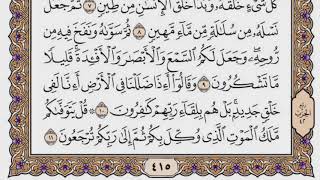 كُلَّ شَىْءٍ خَلَقَهُۥ وَبَدَأَ خَلْقَ ٱلْإِنسَٰنِ مِن طِينٍ ٧ ثُمَّ جَعَلَ
نَسْلَهُۥ مِن سُلَٰلَةٍ مِّن مَّآءٍ مَّهِينٍ ٨ ثُمَّ سَوَّىٰهُ وَنَفَخَ فِيهِ مِن
رُّوحِهِۦ وَجَعَلَ لَكُمُ ٱلسَّمْعَ وَٱلْأَبْصَٰرَ وَٱلْأَفْـِٔدَةَ قَلِيلًا
مَّا تَشْكُرُونَ ٩ وَقَالُوٓا۟ أَءِذَا ضَلَلْنَا فِى ٱلْأَرْضِ أَءِنَّا لَفِى
خَلْقٍ جَدِيدٍۭ بَلْ هُم بِلِقَآءِ رَبِّهِمْ كَٰفِرُونَ ١٠ قُلْ يَتَوَفَّىٰكُم
مَّلَكُ ٱلْمَوْتِ ٱلَّذِى وُكِّلَ بِكُمْ ثُمَّ إِلَىٰ رَبِّكُمْ تُرْجَعُونَ ١١
٤١٥